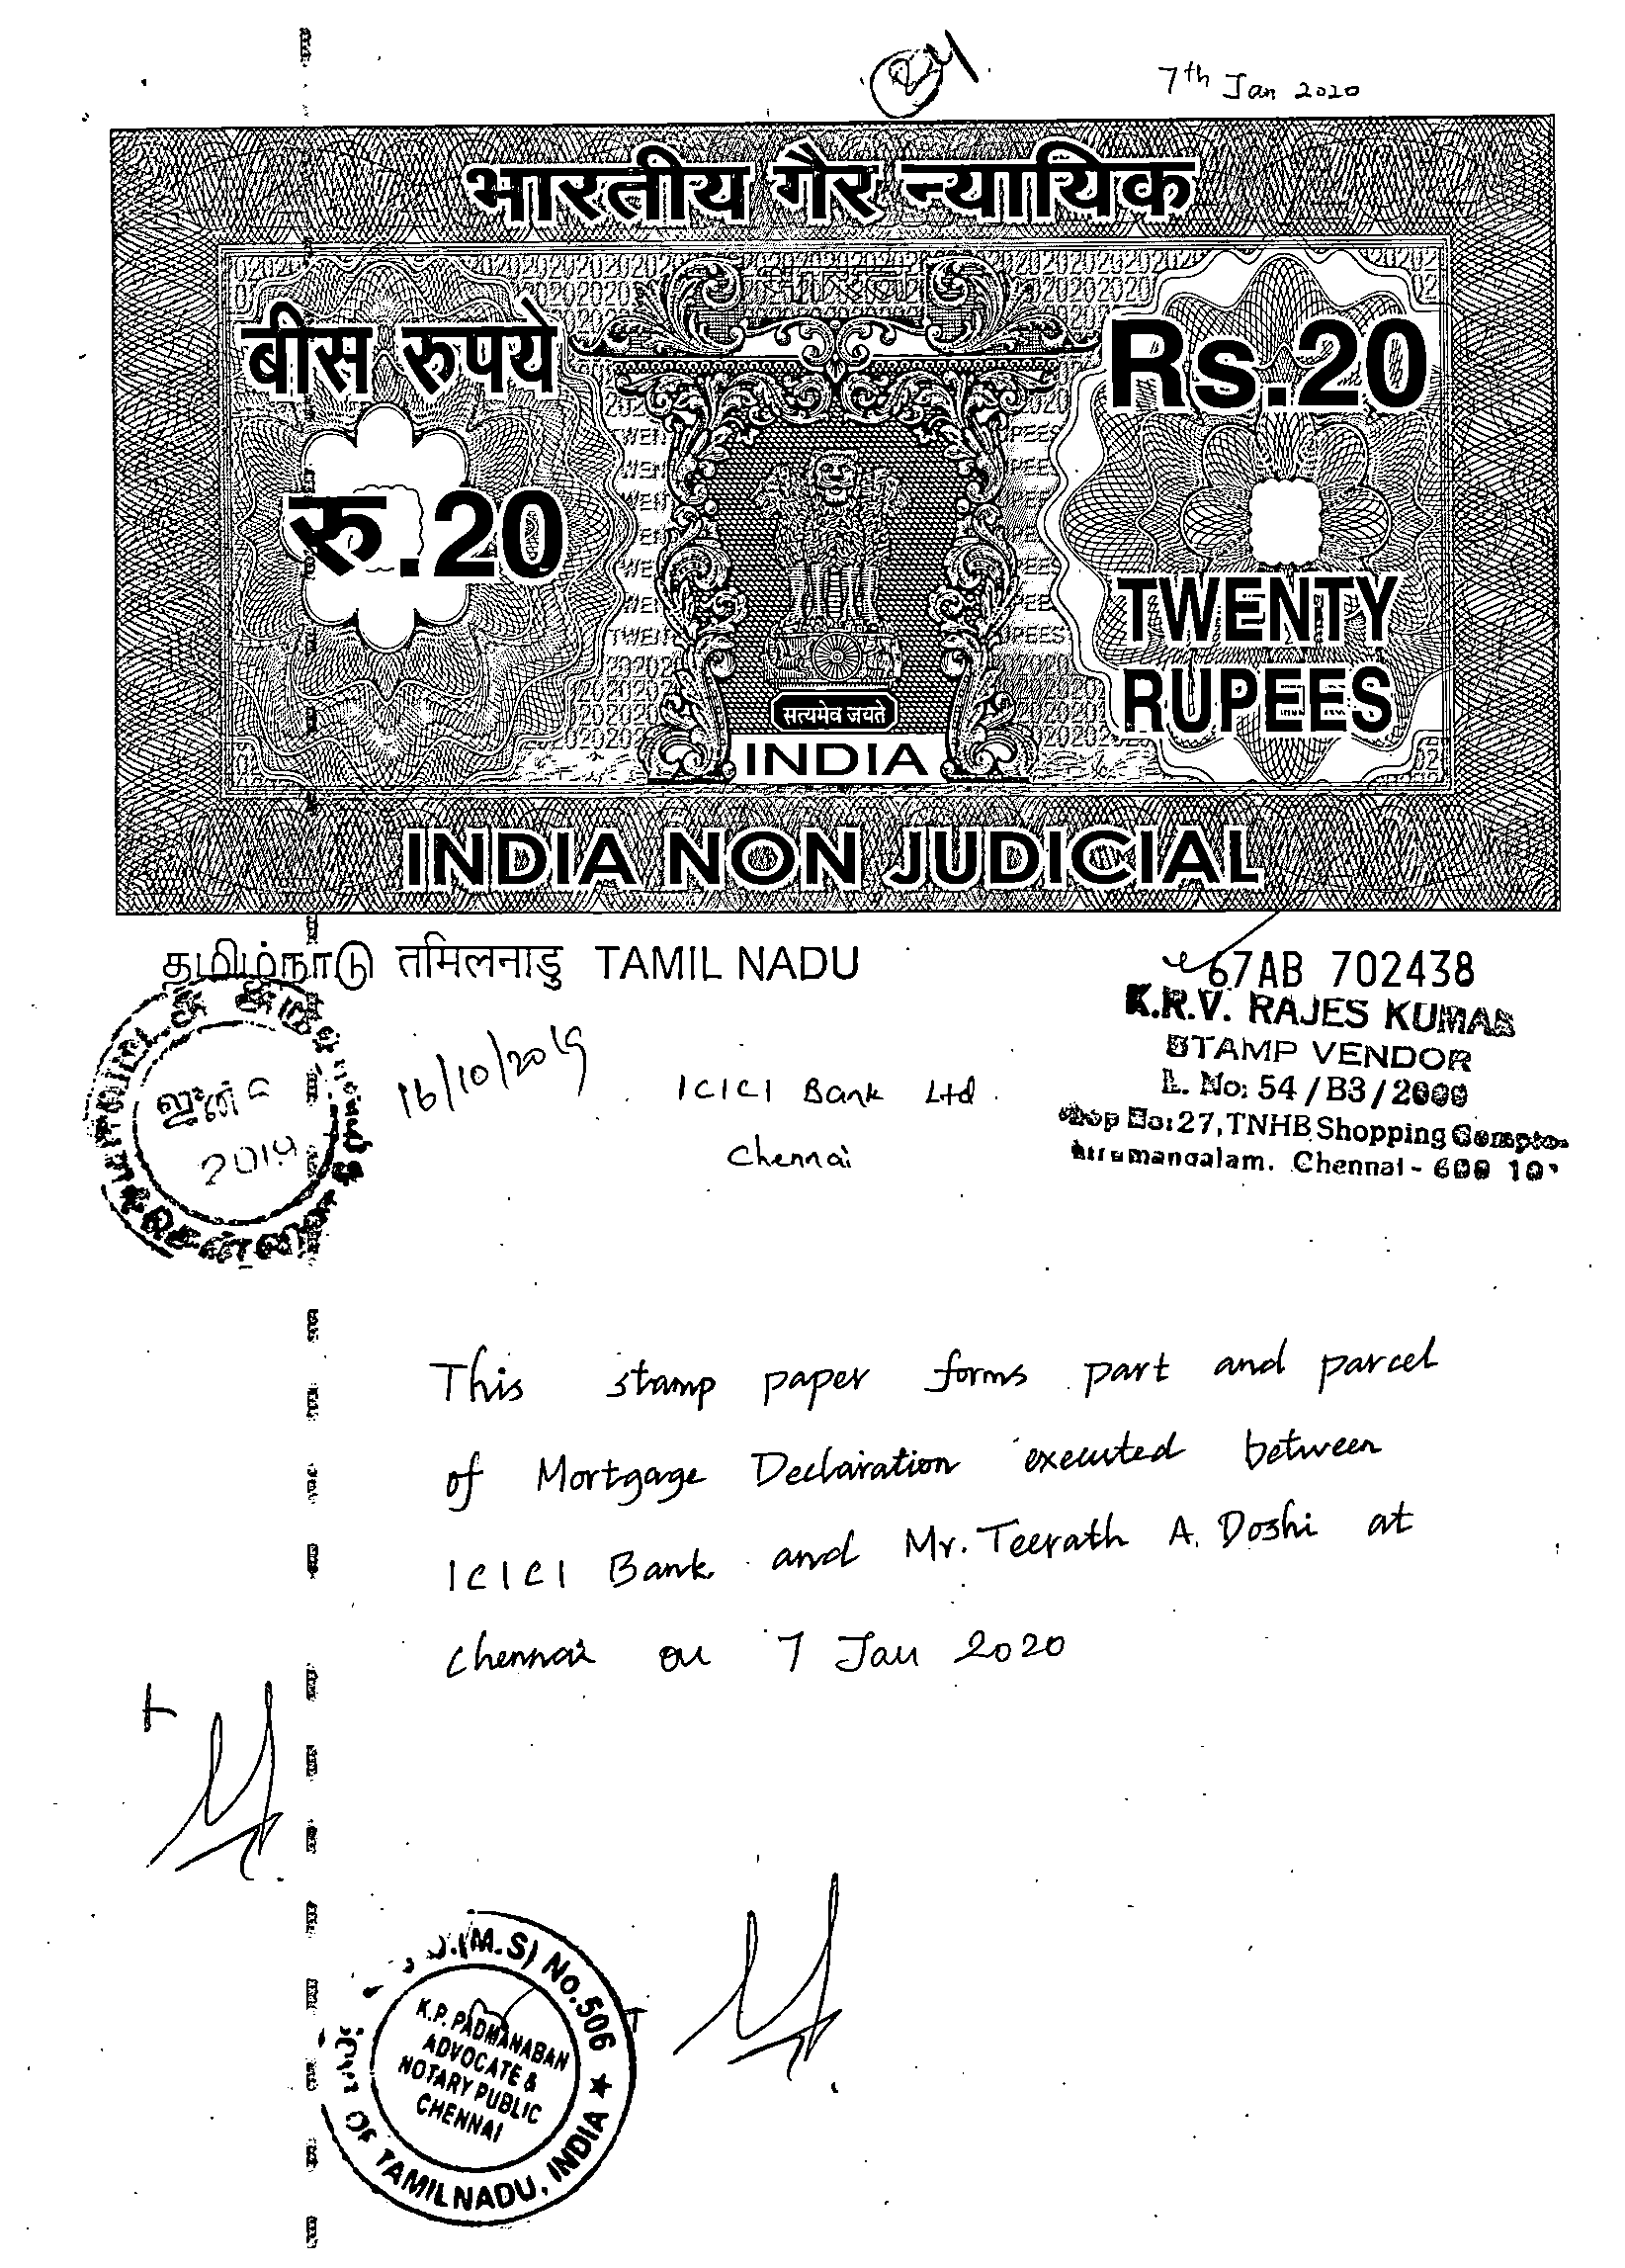 7th Jan 2020
भारतीय गैर न्यायिक
भारत
बीस रुपये
Rs.20
रु.20
TWENTY
RUPEES
सत्यमेव जयते
INDIA
INDIA NON JUDICIAL
தமிழ்நாடு तमिलनाडु TAMIL NADU
67AB 702438
K.R.V. RAJES KUMAR
STAMP VENDOR
L. No: 54/B3/2000
Shop No: 27, TNHB Shopping
Chennai - 600
16/10/2019
ICICI Bank Ltd
Chennai
2019
This stamp paper forms part and parcel
of Mortgage Declairation executed between
ICICI Bank and Mr. Teerath A. Doshi at
Chennai on 7 Jan 2020
(M.S) No.506
K.P. PADMANABAN
ADVOCATE &
NOTARY PUBLIC
CHENNAI
OF TAMILNADU, INDIA ★